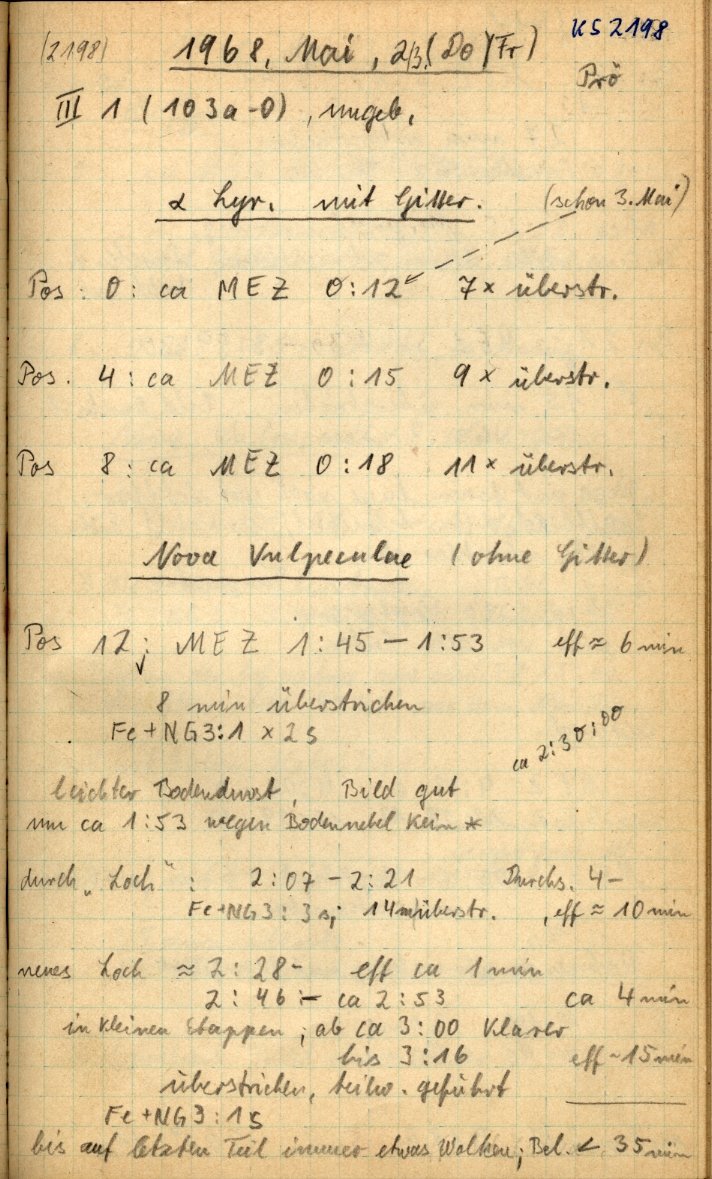 (2198) 1968, Mai, 2/3. (Do/Fr) KS 2198
Prö
III 1 (103a-O), ungeb.
α Lyr. mit Gitter. (schon 3. Mai)
Pos. 0: ca MEZ 0:12 7x überstr.
Pos. 4: ca MEZ 0:15 9x überstr.
Pos 8: ca MEZ 0:18 11x überstr.
Nova Vulpeculae (ohne Gitter)
Pos 12: MEZ 1:45 – 1:53 eff ≈ 6 min
8 min überstrichen
Fe+NG3: 1 x 2s
ca 2:30:00
leichter Bodendunst, Bild gut
um ca 1:53 wegen Bodennebel kein *
durch „Loch“: 2:07 – 2:21 Durchs. 4–
Fe+NG3: 3s; 14m überstr., eff ≈ 10 min
neues Loch ≈ 2:28– eff ca 1 min
2:46 – ca 2:53 ca 4 min
in kleinen Etappen; ab ca 3:00 klarer
bis 3:16 eff ~ 15 min
überstrichen, teilw. geführt
Fe+NG3: 1s
bis auf letzten Teil immer etwas Wolken; Bel. < 35 min